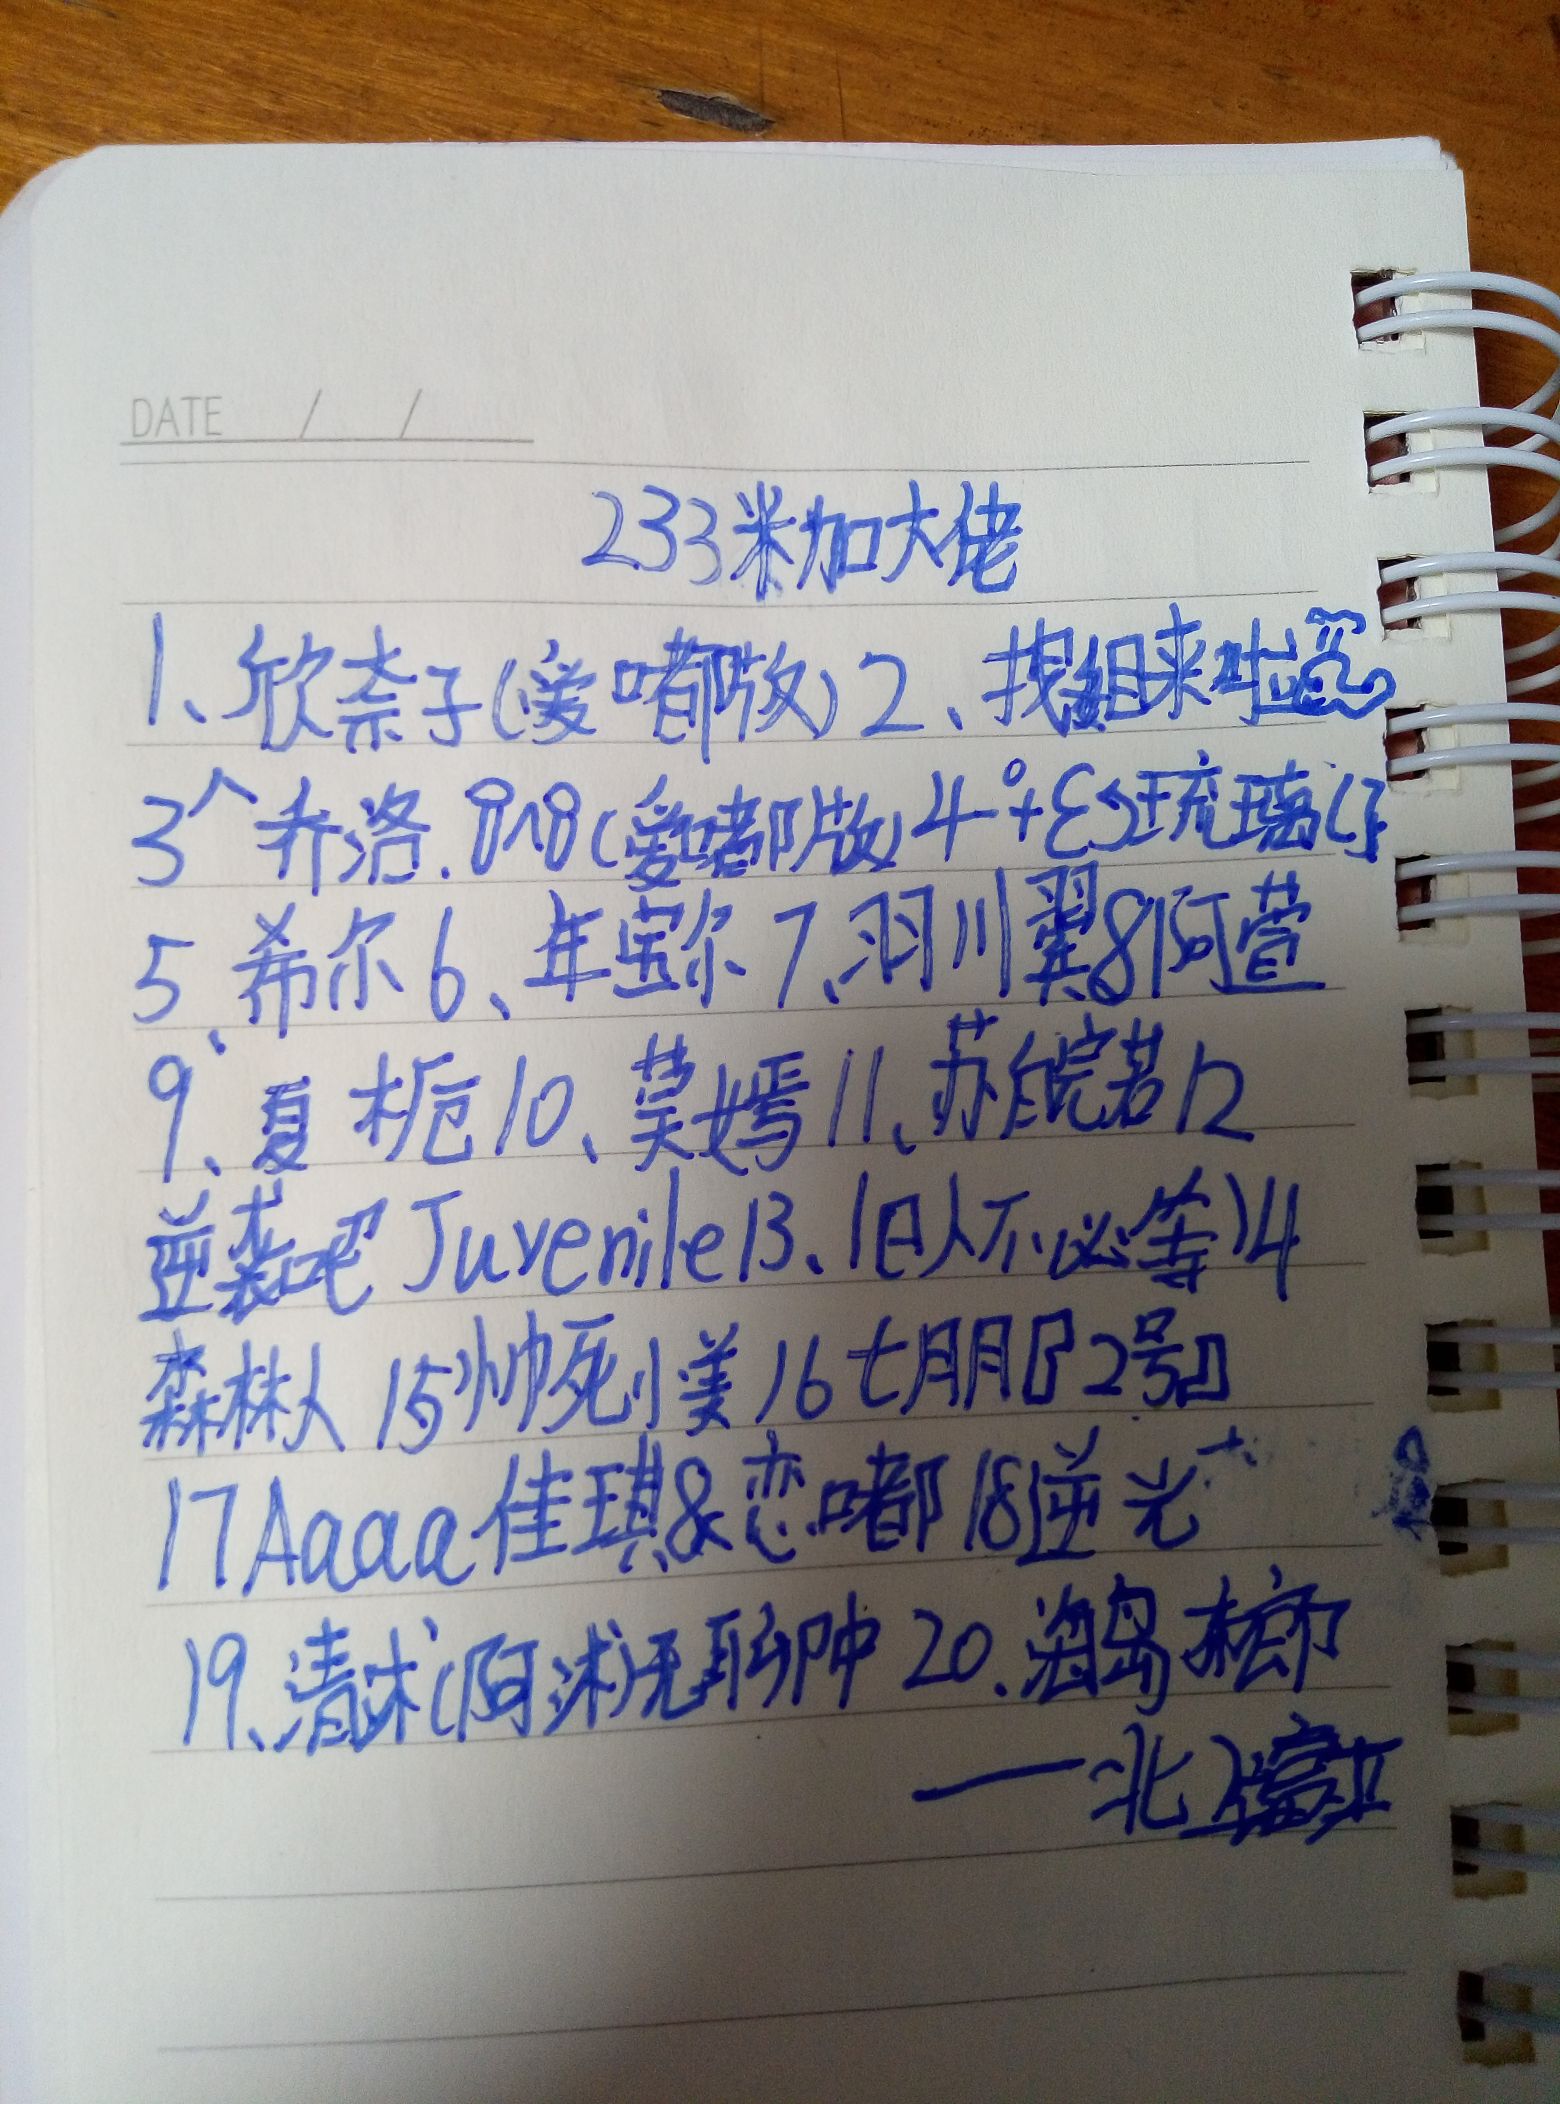 DATE / /
233米加大佬
1、欣柰子(爱嘟版)2、找组来啦
3、乔洛.8^8(爱嘟版)4°+ε 琉璃(
5、希尔6、年宝尔7、羽川翼8阿萱
9、夏栀10、莫嫣11、苏皖若12
逆袭吧Juvenile13、旧人不必等14
森林人15帅死小美16七月月『2号』
17Aaaa佳琪&恋嘟18逆光
19、清沭(阿沭)无聊中20、海岛
——北